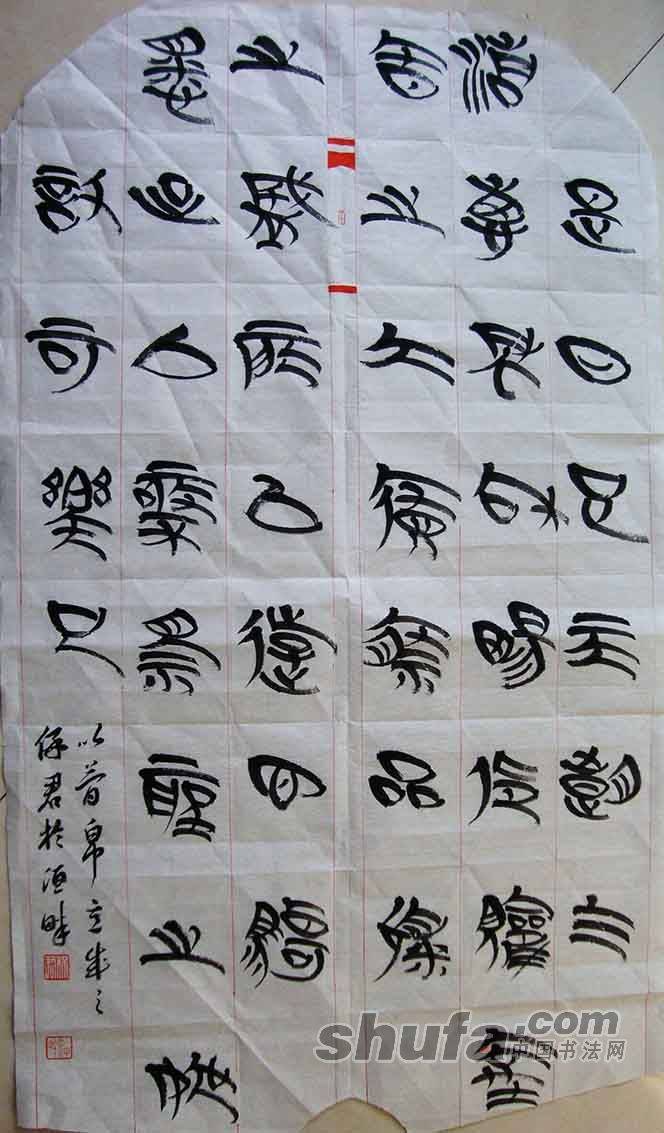 是日也天朗气
清惠風和暢仰觀宇
宙之大俯察品類
之盛所以遊目騁
懷足以極視聽之娛
信可樂也
以帛意成之
保君於洹畔
shufa.com
中国书法网